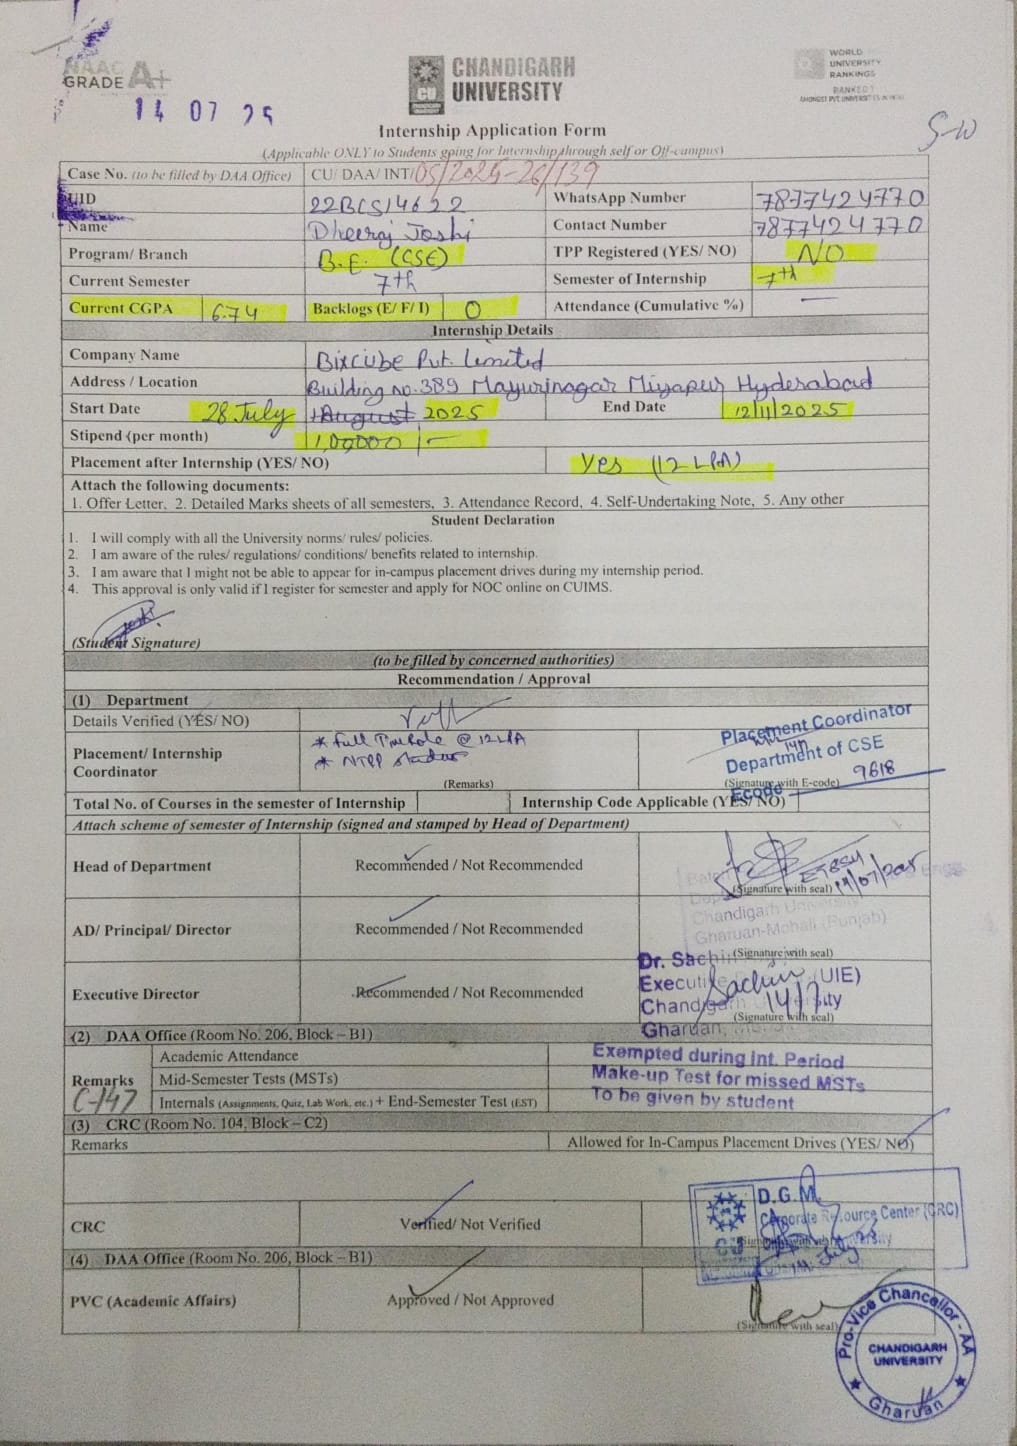 NAAC
GRADE A+
14 07 25
CHANDIGARH
UNIVERSITY
WORLD
UNIVERSITY
RANKINGS
RANKED
AMONGST PVT. UNIVERSITIES IN INDIA
Internship Application Form
(Applicable ONLY to Students going for Internship through self or Off-campus)
Case No. (to be filled by DAA Office) CU/ DAA/ INT/05/2025-26/139
UID 22BCS14622 WhatsApp Number 7877424770
Name Dheeraj Joshi Contact Number 7877424770
Program/ Branch B.E. (CSE) TPP Registered (YES/ NO) NO
Current Semester 7th Semester of Internship 7th
Current CGPA 6.74 Backlogs (E/ F/ I) 0 Attendance (Cumulative %) —
Internship Details
Company Name Bixcube Pvt. Limited
Address / Location Building no. 389 Mayurinagar Miyapur Hyderabad
Start Date 28 July 1 August 2025 End Date 12/11/2025
Stipend (per month) 1,00000/-
Placement after Internship (YES/ NO) Yes (12 LPA)
Attach the following documents:
1. Offer Letter, 2. Detailed Marks sheets of all semesters, 3. Attendance Record, 4. Self-Undertaking Note, 5. Any other
Student Declaration
1. I will comply with all the University norms/ rules/ policies.
2. I am aware of the rules/ regulations/ conditions/ benefits related to internship.
3. I am aware that I might not be able to appear for in-campus placement drives during my internship period.
4. This approval is only valid if I register for semester and apply for NOC online on CUIMS.
(Student Signature)
(to be filled by concerned authorities)
Recommendation / Approval
(1) Department
Details Verified (YES/ NO)
Placement/ Internship Coordinator
* Full Time Role @ 12 LPA
* NTPP student
(Remarks)
Placement Coordinator
Department of CSE
(Signature with E-code)
Ecode 9618
Total No. of Courses in the semester of Internship Internship Code Applicable (YES/ NO)
Attach scheme of semester of Internship (signed and stamped by Head of Department)
Head of Department Recommended / Not Recommended
(Signature with seal) 14/07/2025
Chandigarh University
Gharuan-Mohali (Punjab)
AD/ Principal/ Director Recommended / Not Recommended
(Signature with seal)
Dr. Sachin
Executive (UIE)
Chandigarh University
Gharuan,
Executive Director Recommended / Not Recommended
Sachin
14/7
(Signature with seal)
(2) DAA Office (Room No. 206, Block – B1)
Remarks
C-147
Academic Attendance Exempted during Int. Period
Mid-Semester Tests (MSTs) Make-up Test for missed MSTs
Internals (Assignments, Quiz, Lab Work, etc.) + End-Semester Test (EST) To be given by student
(3) CRC (Room No. 104, Block – C2)
Remarks Allowed for In-Campus Placement Drives (YES/ NO)
CRC Verified/ Not Verified
D.G.M.
Corporate Resource Center (CRC)
CU
(4) DAA Office (Room No. 206, Block – B1)
PVC (Academic Affairs) Approved / Not Approved
(Signature with seal)
Pro-Vice Chancellor - AA
CHANDIGARH
UNIVERSITY
Gharuan